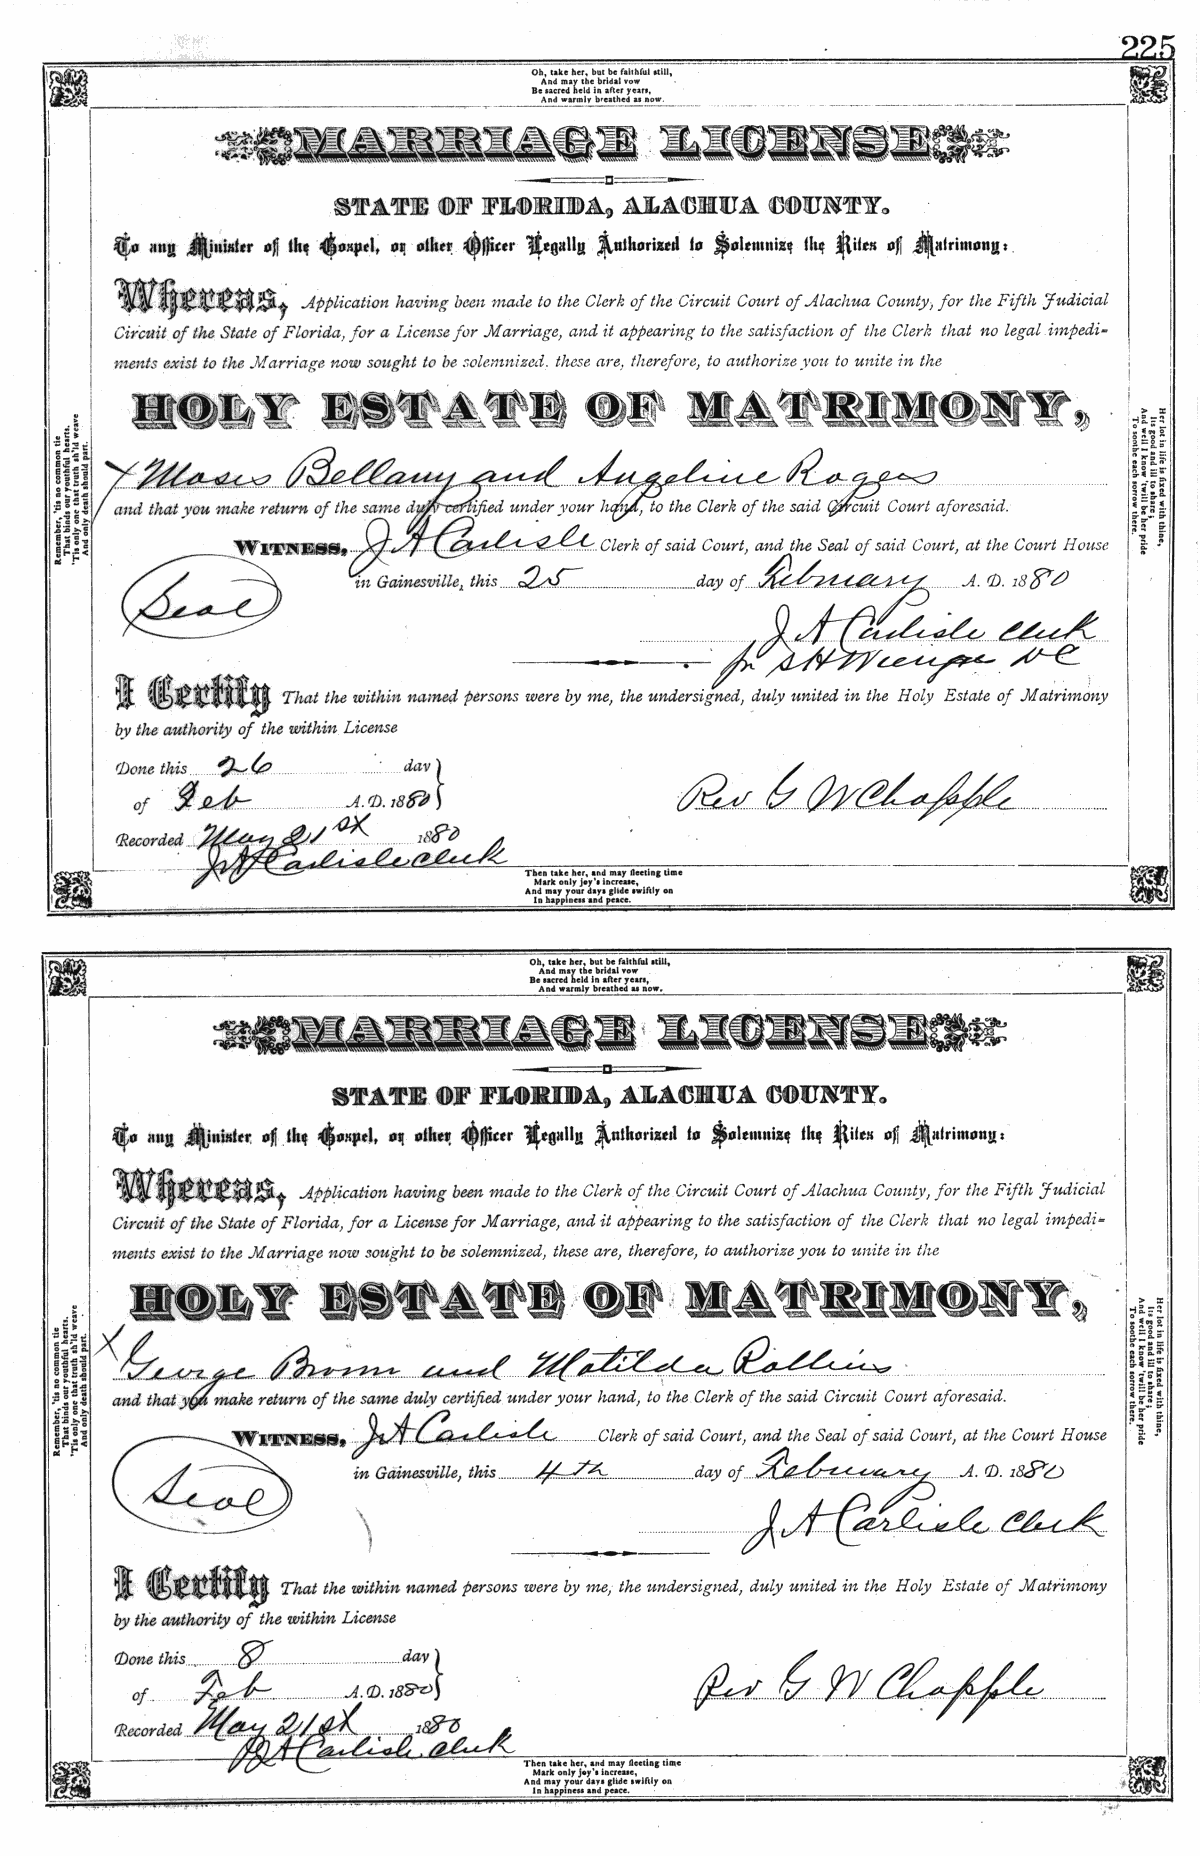 225
Oh, take her, but be faithful still,
And may the bridal vow
Be sacred held in after years,
And warmly breathed as now.
MARRIAGE LICENSE
STATE OF FLORIDA, ALACHUA COUNTY.
To any Minister of the Gospel, or other Officer Legally Authorized to Solemnize the Rites of Matrimony:
Whereas, Application having been made to the Clerk of the Circuit Court of Alachua County, for the Fifth Judicial
Circuit of the State of Florida, for a License for Marriage, and it appearing to the satisfaction of the Clerk that no legal impedi-
ments exist to the Marriage now sought to be solemnized, these are, therefore, to authorize you to unite in the
HOLY ESTATE OF MATRIMONY,
X Moses Bellamy and Angeline Rogers
and that you make return of the same duly certified under your hand, to the Clerk of the said Circuit Court aforesaid.
WITNESS, J A Carlisle Clerk of said Court, and the Seal of said Court, at the Court House
Seal
in Gainesville, this 25 day of February A. D. 1880
J A Carlisle Clerk
for S H Wienges DC
I Certify That the within named persons were by me, the undersigned, duly united in the Holy Estate of Matrimony
by the authority of the within License
Done this 26 day
of Feb A.D. 1880
Rev G W Chapple
Recorded May 21st 1880
J A Carlisle Clerk
Then take her, and may fleeting time
Mark only joy's increase,
And may your days glide swiftly on
In happiness and peace.
Remember, 'tis no common tie
That binds our youthful hearts,
'Tis only one that truth sh'ld weave
And only death should part.
Her lot in life is fixed with thine,
Its good and ill to share;
And well I know 'twill be her pride
To soothe each sorrow there.
Oh, take her, but be faithful still,
And may the bridal vow
Be sacred held in after years,
And warmly breathed as now.
MARRIAGE LICENSE
STATE OF FLORIDA, ALACHUA COUNTY.
To any Minister of the Gospel, or other Officer Legally Authorized to Solemnize the Rites of Matrimony:
Whereas, Application having been made to the Clerk of the Circuit Court of Alachua County, for the Fifth Judicial
Circuit of the State of Florida, for a License for Marriage, and it appearing to the satisfaction of the Clerk that no legal impedi-
ments exist to the Marriage now sought to be solemnized, these are, therefore, to authorize you to unite in the
HOLY ESTATE OF MATRIMONY,
X George Brown and Matilda Rollins
and that you make return of the same duly certified under your hand, to the Clerk of the said Circuit Court aforesaid.
WITNESS, J A Carlisle Clerk of said Court, and the Seal of said Court, at the Court House
Seal
in Gainesville, this 4th day of February A. D. 1880
J A Carlisle Clerk
I Certify That the within named persons were by me, the undersigned, duly united in the Holy Estate of Matrimony
by the authority of the within License
Done this 8 day
of Feb A.D. 1880
Rev G W Chapple
Recorded May 21st 1880
J A Carlisle Clerk
Then take her, and may fleeting time
Mark only joy's increase,
And may your days glide swiftly on
In happiness and peace.
Remember, 'tis no common tie
That binds our youthful hearts,
'Tis only one that truth sh'ld weave
And only death should part.
Her lot in life is fixed with thine,
Its good and ill to share;
And well I know 'twill be her pride
To soothe each sorrow there.